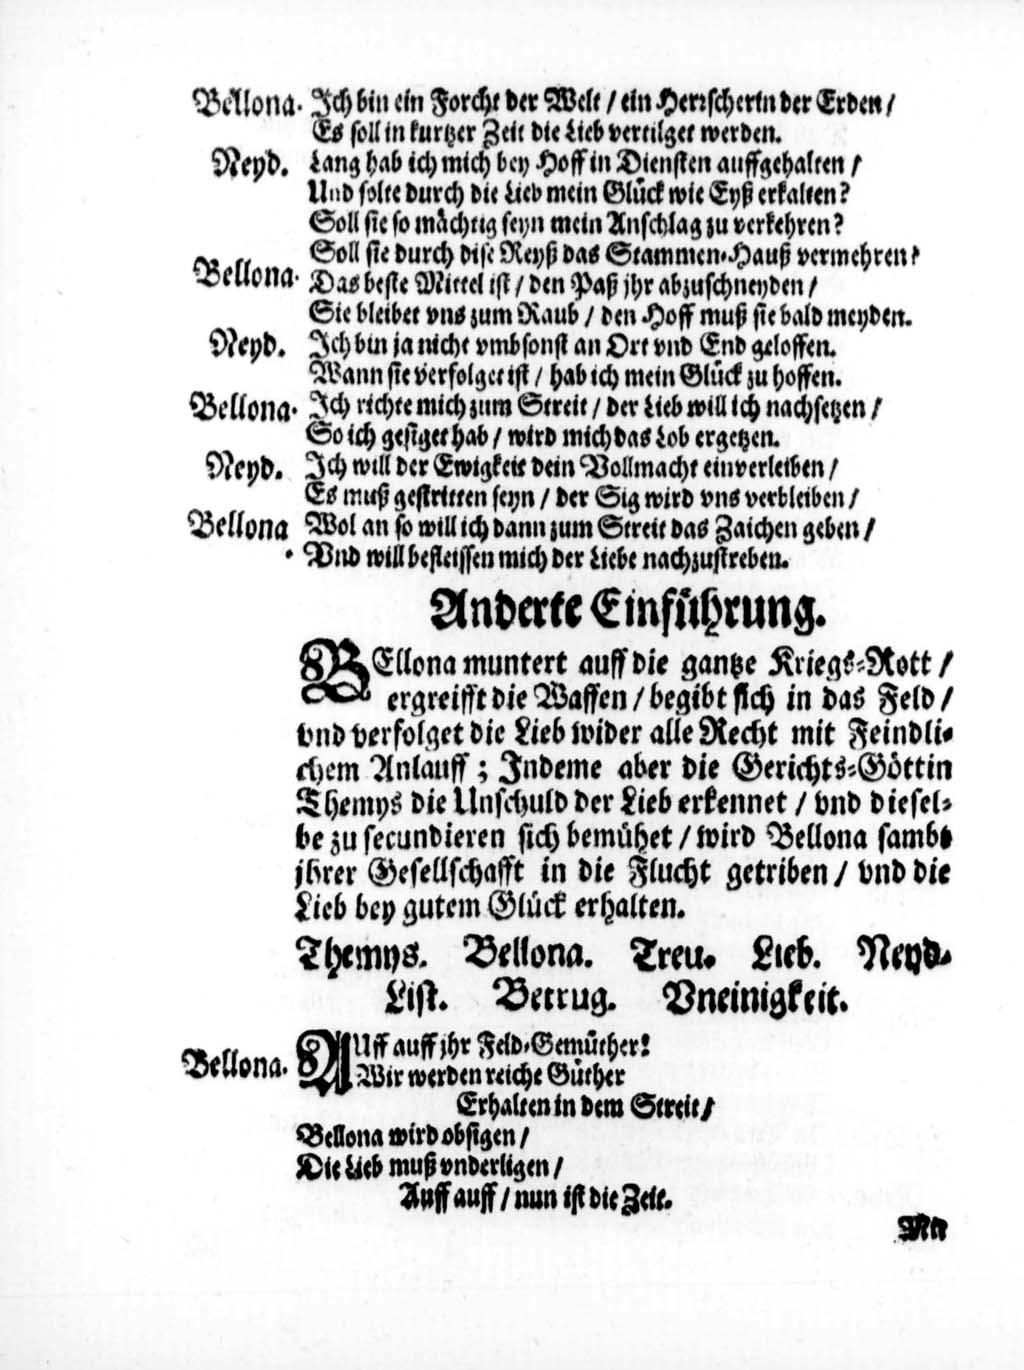 Bellona. Ich bin ein Forcht der Welt / ein Hertscherin der Erden /
Es soll in kurtzer Zeit die Lieb vertilget werden.
Neyd. Lang hab ich mich bey Hoff in Diensten auffgehalten /
Und solte durch die Lieb mein Glück wie Eyß erkalten?
Soll sie so mächtig seyn mein Anschlag zu verkehren?
Soll sie durch dise Reyß das Stammen-Hauß vermehren?
Bellona. Das beste Mittel ist / den Paß jhr abzuschneyden /
Sie bleibet vns zum Raub / den Hoff muß sie bald meyden.
Neyd. Ich bin ja nicht vmbsonst an Ort vnd End geloffen.
Wann sie verfolget ist / hab ich mein Glück zu hoffen.
Bellona. Ich richte mich zum Streit / der Lieb will ich nachsetzen /
So ich gesiget hab / wird mich das Lob ergetzen.
Neyd. Ich will der Ewigkeit dein Vollmacht einverleiben /
Es muß gestritten seyn / der Sig wird vns verbleiben /
Bellona Wol an so will ich dann zum Streit das Zaichen geben /
. Vnd will befleissen mich der Liebe nachzustreben.
Anderte Einführung.
BEllona muntert auff die gantze Kriegs-Rott /
ergreifft die Waffen / begibt sich in das Feld /
vnd verfolget die Lieb wider alle Recht mit Feindli-
chem Anlauff ; Indeme aber die Gerichts-Göttin
Themys die Unschuld der Lieb erkennet / vnd diesel-
be zu secundieren sich bemühet / wird Bellona sambt
jhrer Gesellschafft in die Flucht getriben / vnd die
Lieb bey gutem Glück erhalten.
Themys. Bellona. Treu. Lieb. Neyd.
List. Betrug. Vneinigkeit.
Bellona. AUff auff jhr Feld-Gemüther!
Wir werden reiche Güther
Erhalten in dem Streit /
Bellona wird obsigen /
Die Lieb muß vnderligen /
Auff auff / nun ist die Zeit.
Mit